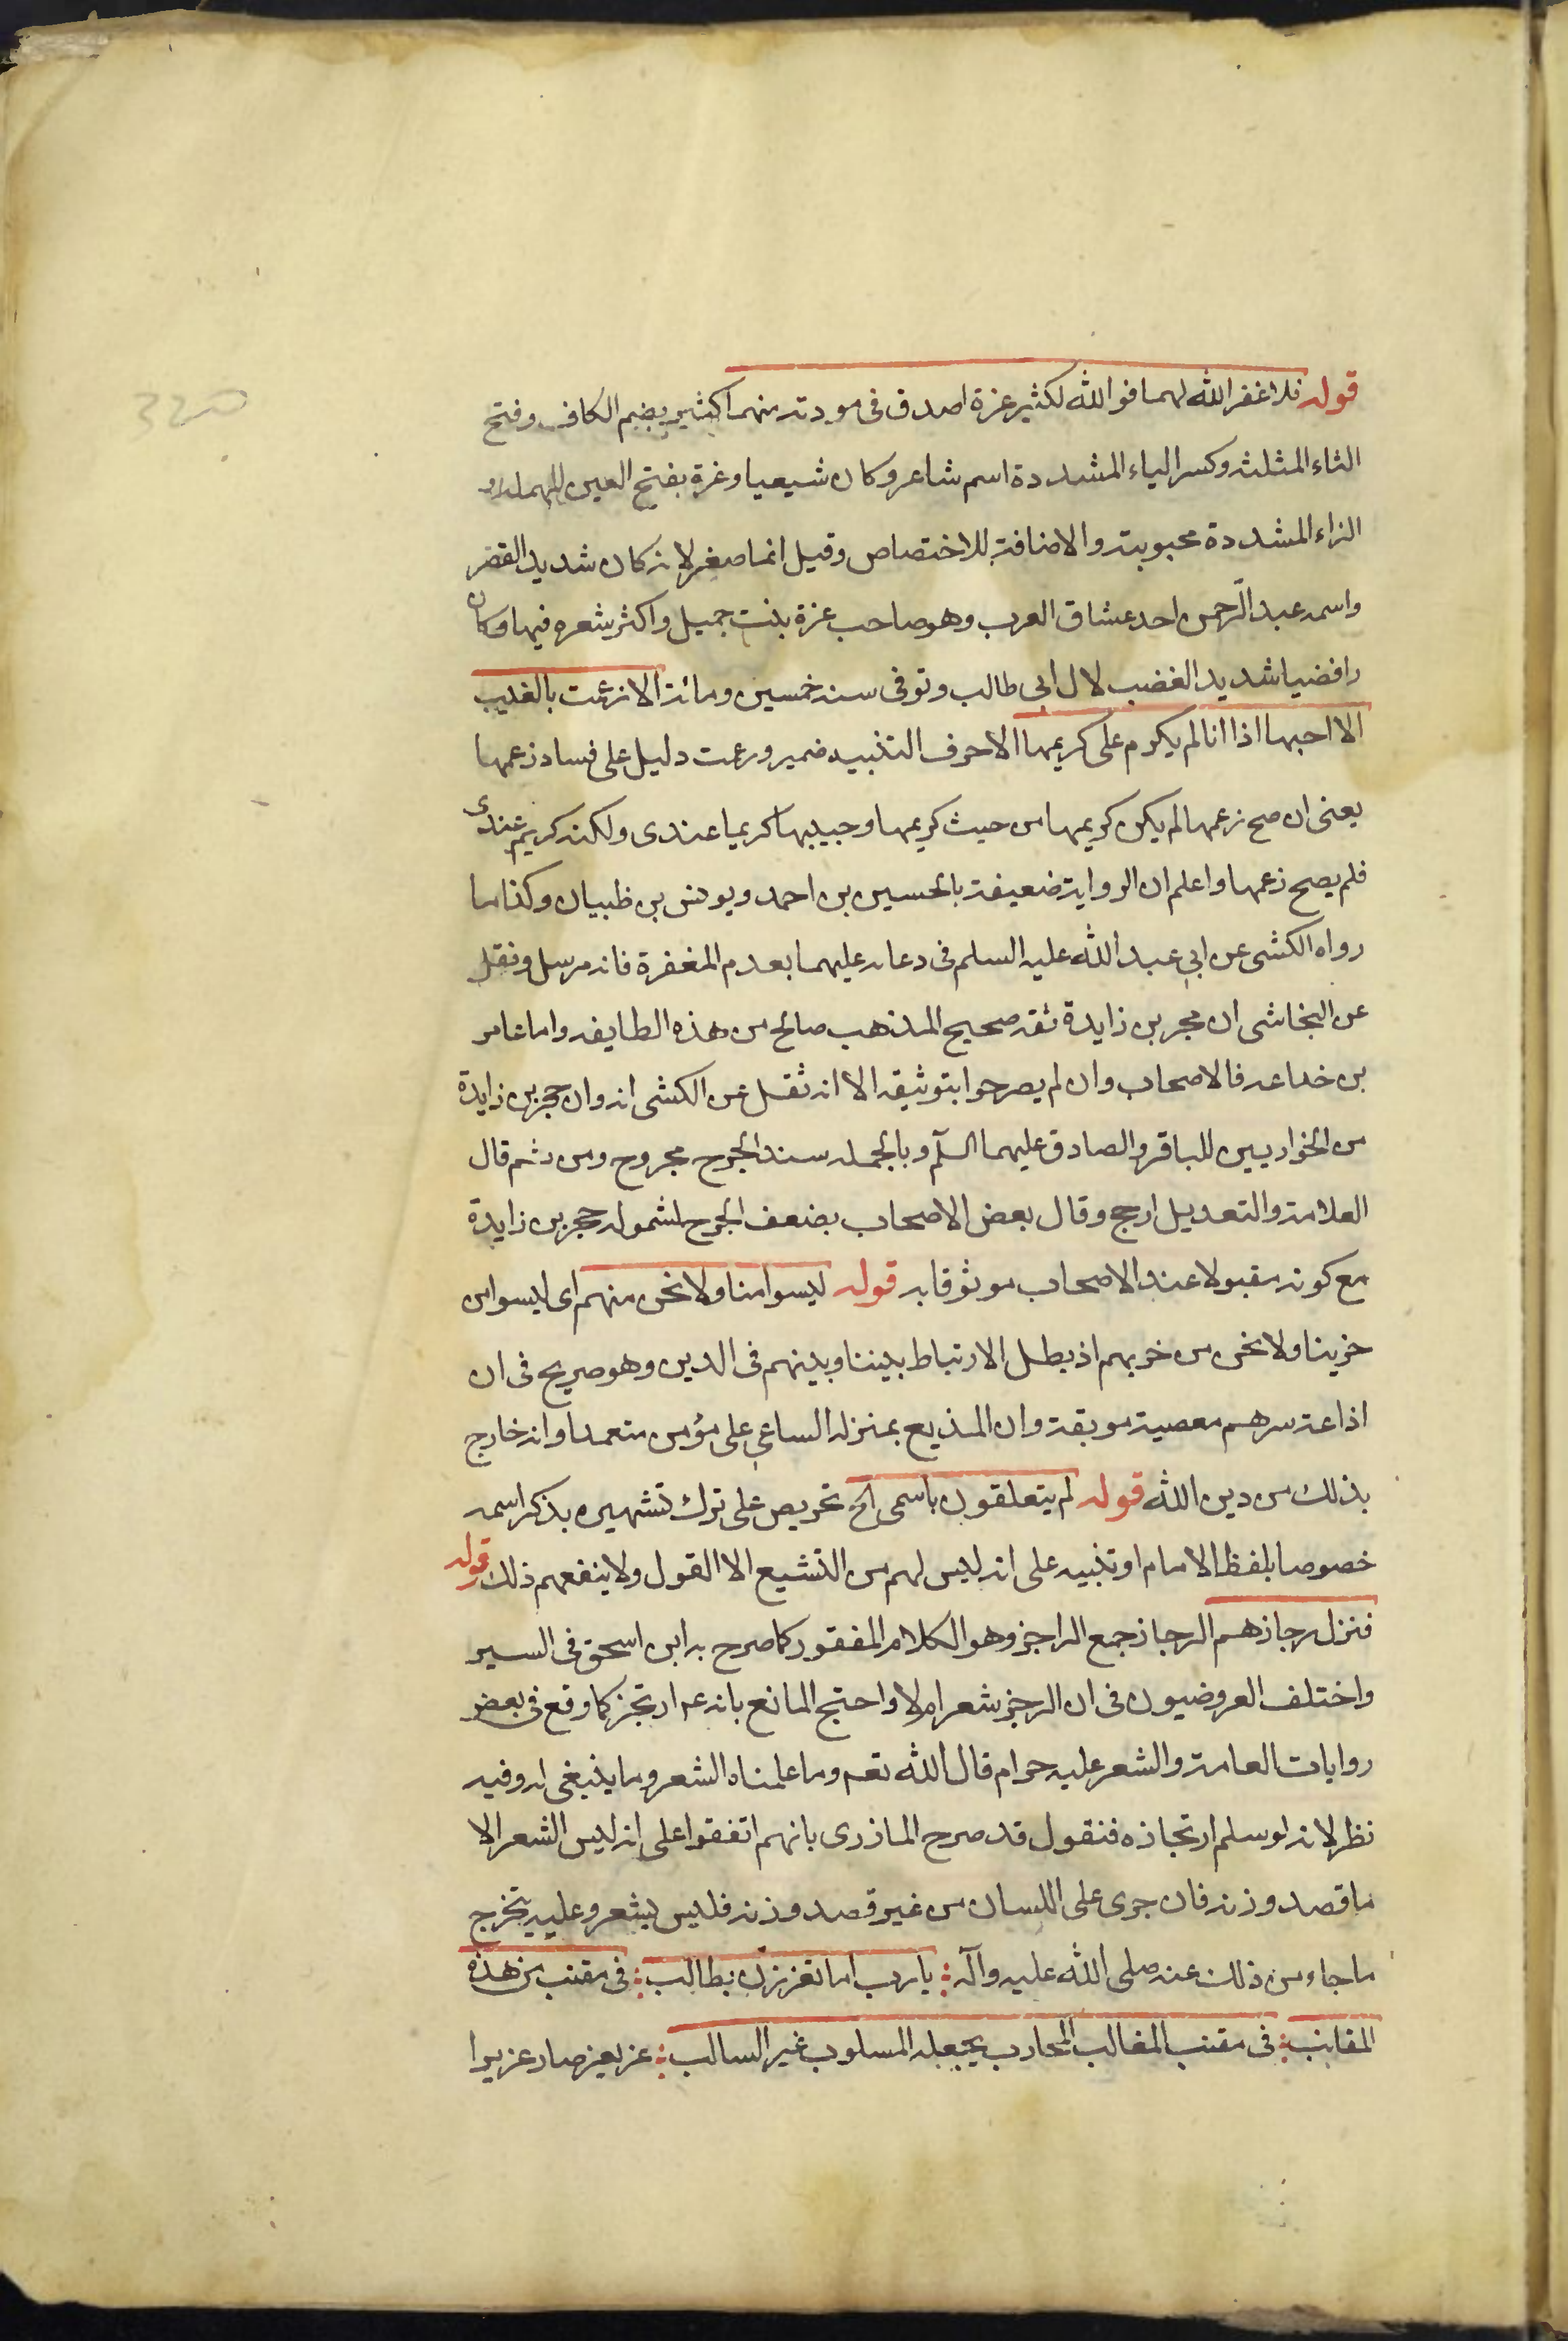 قوله فلا غفر الله لهما فوالله لكثير عزة اصدق فى مودته منهما كثير بضم الكاف وفتح
الثاء المثلثه وكسر الياء المشددة اسم شاعر وكان شيعيا وعزة بفتح العين المهملة و
الزاء المشددة محبوبته والاضافة للاختصاص وقيل انما صغر لانه كان شديد القصر
واسمه عبد الرّحمن احد عشاق العرب وهو صاحب عزة بنت جميل واكثر شعره فيها وكان
رافضيا شديد الغضب لال ابى طالب وتوفى سنه خمسين ومائه الا زعمت بالغيب
الا احبها اذا انا لم يكرم على كريمها الا حرف التنبيه ضمير ورعمت دليل على فساد زعمها
يعنى ان صح زعمها لم يكن كريمها من حيث كريمها وحبيبها كريما عندى ولكنه كريم عندى
فلم يصح زعمها واعلم ان الرواية ضعيفة بالحسين بن احمد ويونس بن ظبيان وكذا ما
رواه الكشى عن ابى عبد الله عليه السلم فى دعائه عليهما بعدم المغفرة فانه مرسل ونقل
عن النجاشى ان حجر بن زايدة ثقه صحيح المذهب صالح من هذه الطايفه واما عامر
بن خداعه فالاصحاب وان لم يصرحوا بتوثيقه الا انه نقل عن الكشى انه وان حجر بن زايدة
من الحواريين للباقر والصادق عليهما السلم وبالجمله سند الجرح مجروح ومن ثم قال
العلامة والتعديل ارجح وقال بعض الاصحاب بضعف الجرح لشموله حجر بن زايدة
مع كونه مقبولا عند الاصحاب موثوقا به قوله ليسوا منا ولا نحن منهم اى ليسوا من
حزبنا ولا نحن من حزبهم اذ بطل الارتباط بيننا وبينهم فى الدين وهو صريح فى ان
اذاعة سرهم معصية موبقة وان المذيع بمنزله الساعى على مؤمن متعمدا وانه خارج
بذلك من دين الله قوله لم يتعلقون باسمى الخ تحريص على ترك تشهيره بذكر اسمه
خصوصا بلفظ الامام او تنبيه على انه ليس لهم من التشيع الا القول ولا ينفعهم ذلك قوله
فنزل رجازهم الرجاز جمع الراجز وهو الكلام المفقور كما صرح به ابن اسحق فى السير
واختلف العروضيون فى ان الرجز شعر ام لا واحتج المانع بانه عم ارتجز كما وقع فى بعض
روايات العامة والشعر عليه حرام قال الله تعم وما علمناه الشعر وما ينبغى له وفيه
نظر لانه لو سلم ارتجازه فنقول قد صرح المازرى بانهم اتفقوا على انه ليس الشعر الا
ما قصد وزنه فان جرى على اللسان من غير قصد وزنه فليس بشعر وعليه يتخرج
ما جاء من ذلك عنه صلى الله عليه وآله : يا رب اما تعززن بطالب : فى مقنب من هذه
المقانب : فى مقنب المغالب المحارب يجعله المسلوب غير السالب : عز يعز صار عزيرا